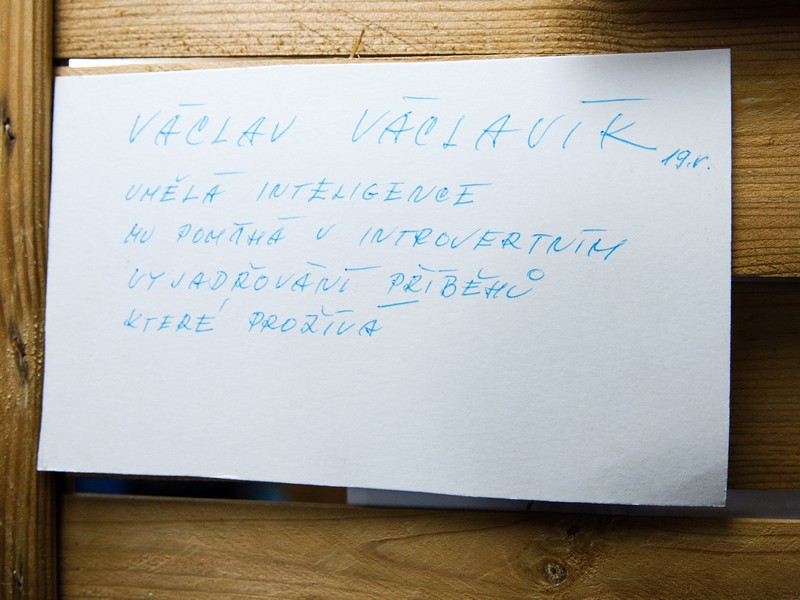 VÁCLAV VÁCLAVÍK 19.r.
UMĚLÁ INTELIGENCE
MU POMÁHÁ V INTROVERTNÍM
VYJADŘOVÁNÍ PŘÍBĚHŮ
KTERÉ PROŽÍVÁ